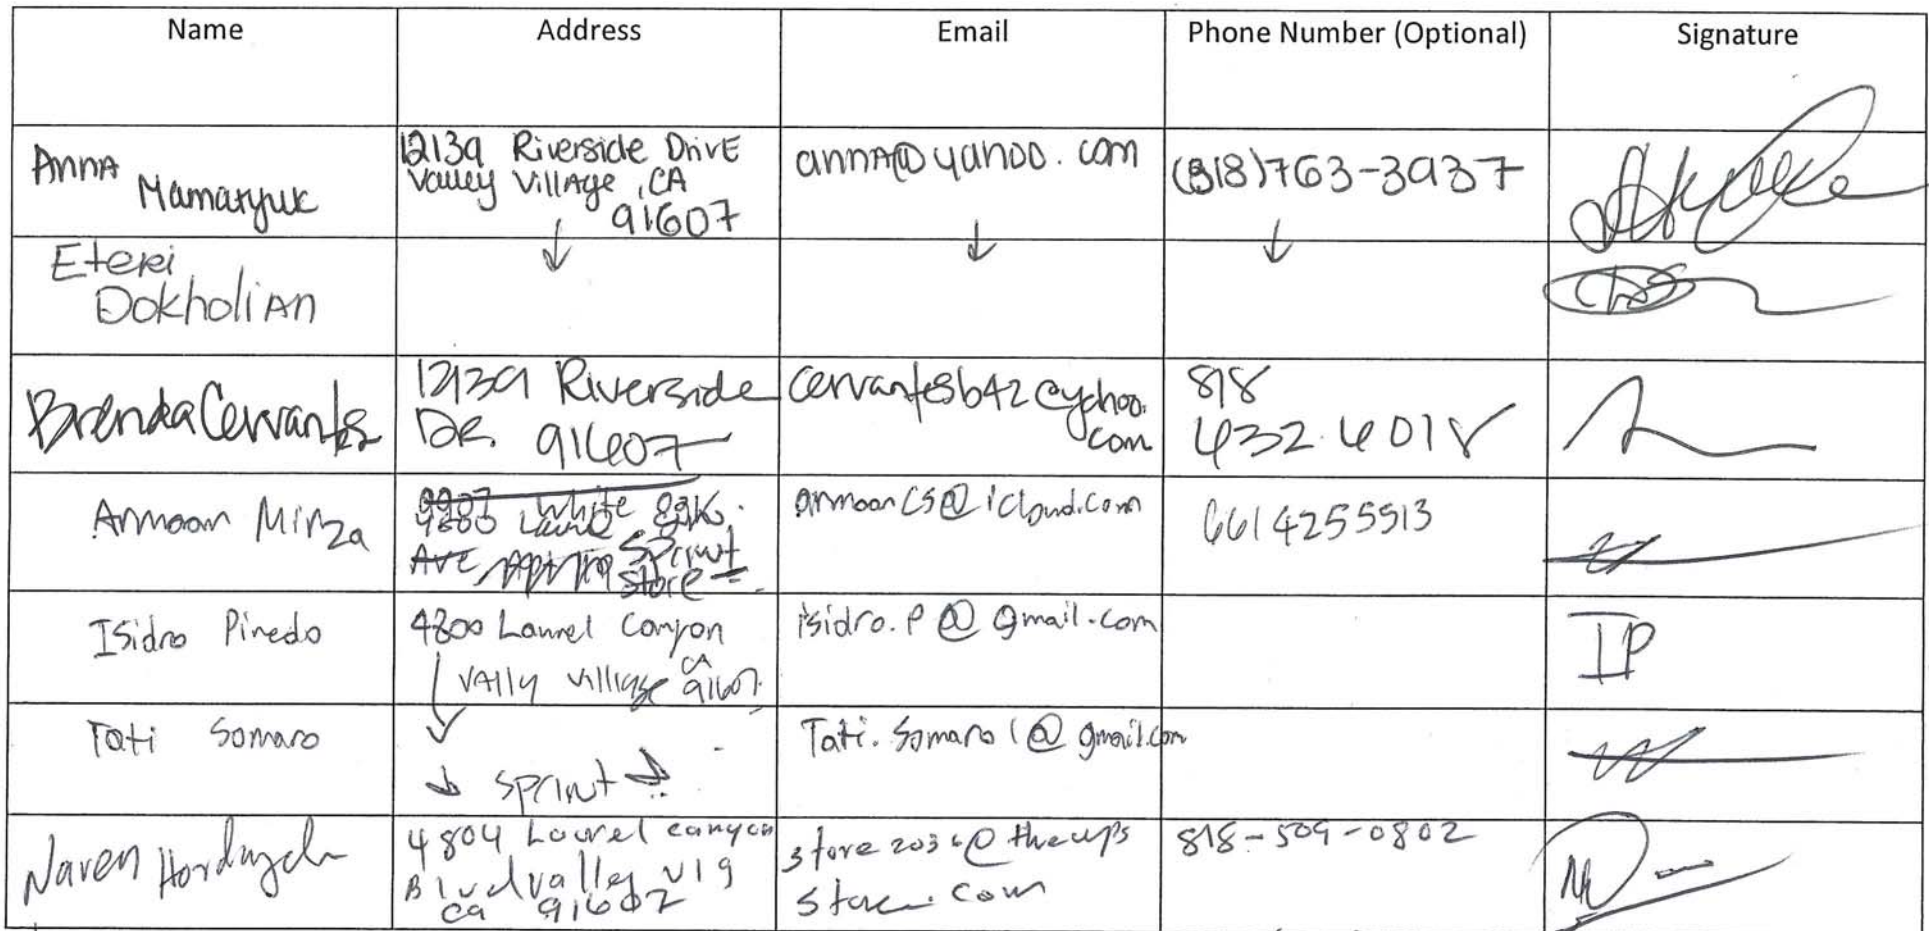 Name Address Email Phone Number (Optional) Signature
Anna
Mamaryuk
12139 Riverside Drive
Valley Village, CA
91607
anna@yahoo.com
(818)763-3937
Eteri
Dokholian
Brenda Cervantes
12139 Riverside
DR. 91607
cervantesb42@yahoo.
com
818
432.6018
Armoan Mirza
White
Ave
Sprint
store
armoancs@icloud.com
6614255513
Isidro Pinedo
4800 Laurel Canyon
Vally Villiage CA
91607
isidro.p@gmail.com
IP
Tati Somaro
Sprint
Tati.Somaro1@gmail.com
Naren
4804 Laurel canyon
Blvd valley vlg
ca 91607
store2036@theups
store.com
818-509-0802